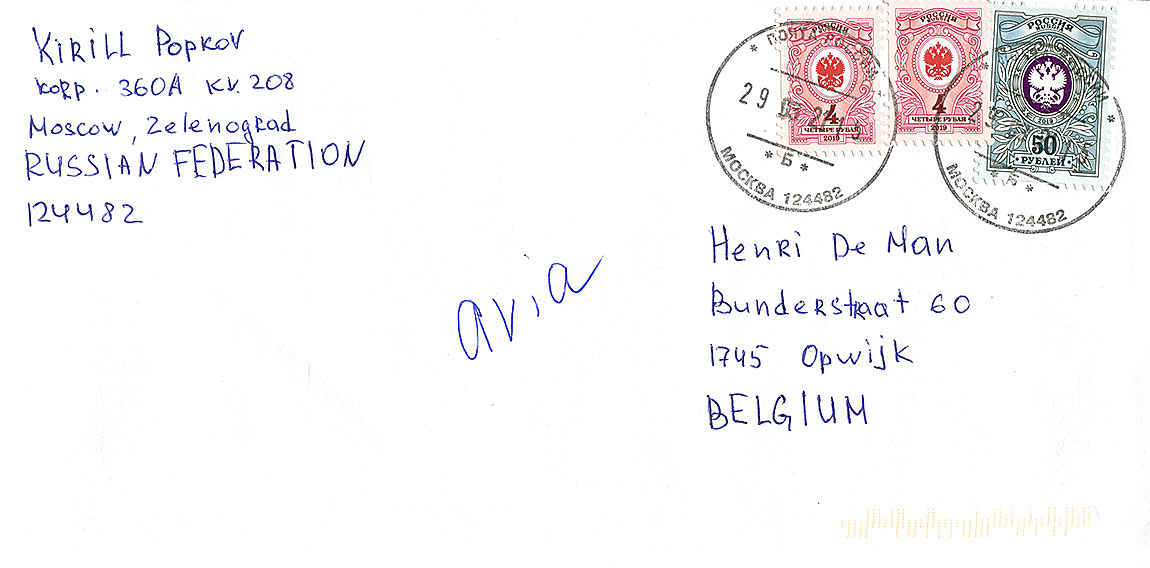 Kirill Popkov
korp. 360A kv. 208
Moscow, Zelenograd
RUSSIAN FEDERATION
124482
avia
РОССИЯ
ROSSIJA
4
ЧЕТЫРЕ РУБЛЯ
2019
РОССИЯ
ROSSIJA
4
ЧЕТЫРЕ РУБЛЯ
2019
РОССИЯ
ROSSIJA
2019
50
РУБЛЕЙ
29 03
* Б *
МОСКВА 124482
* Б *
МОСКВА 124482
Henri De Man
Bunderstraat 60
1745 Opwijk
BELGIUM